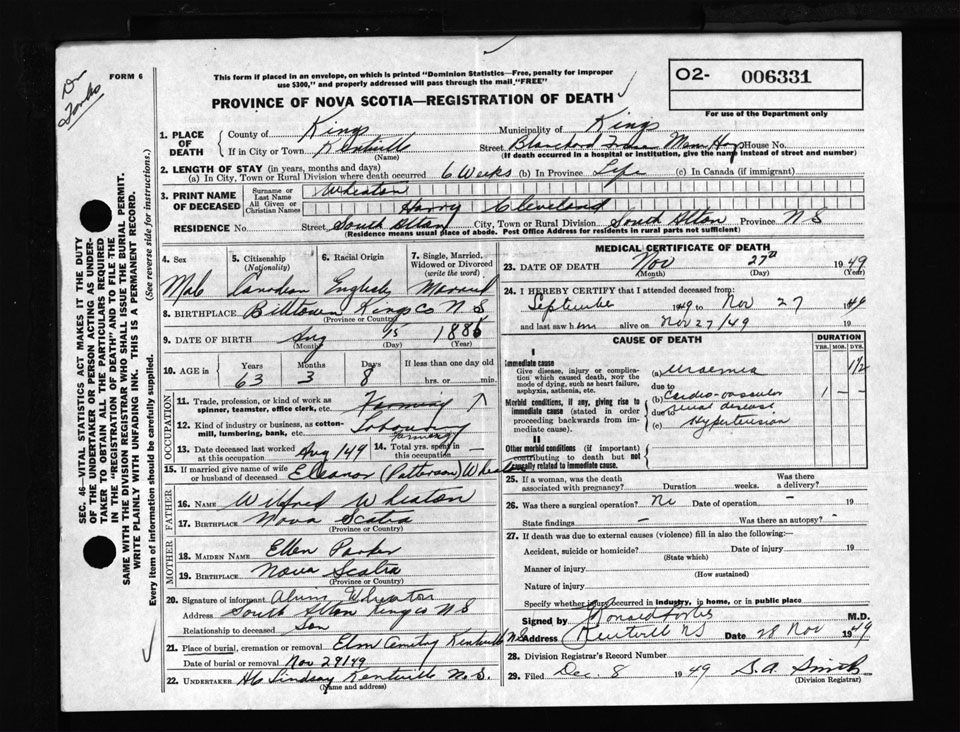 Dr
Forbes
FORM 6
This form if placed in an envelope, on which is printed "Dominion Statistics—Free, penalty for improper
use $300," and properly addressed will pass through the mail "FREE"
PROVINCE OF NOVA SCOTIA—REGISTRATION OF DEATH
O2- 006331
For use of the Department only
1. PLACE OF DEATH County of Kings Municipality of Kings
If in City or Town Kentville Street Blanchard House No.
(Name) (If death occurred in a hospital or institution, give the name instead of street and number)
2. LENGTH OF STAY (in years, months and days)
(a) In City, Town or Rural Division where death occurred 6 Weeks (b) In Province Life (c) In Canada (if immigrant)
3. PRINT NAME OF DECEASED Surname or Last Name Wheaton
All Given or Christian Names Harry Cleveland
RESIDENCE No. Street South Alton City, Town or Rural Division South Alton Province N S
(Residence means usual place of abode. Post Office Address for residents in rural parts not sufficient)
4. Sex Male
5. Citizenship (Nationality) Canadian
6. Racial Origin English
7. Single, Married, Widowed or Divorced (write the word) Married
8. BIRTHPLACE Billtown Kings Co N S
(Province or Country)
9. DATE OF BIRTH Aug 15 1886
(Month) (Day) (Year)
10. AGE in Years Months Days If less than one day old
63 3 8 hrs. or min.
OCCUPATION
11. Trade, profession, or kind of work as spinner, teamster, office clerk, etc. Farming
12. Kind of industry or business, as cotton-mill, lumbering, bank, etc. farming
13. Date deceased last worked at this occupation Aug 149 14. Total yrs. spent in this occupation
15. If married give name of wife or husband of deceased Eleanor (Patterson) Wheaton
FATHER
16. NAME Wilfred Wheaton
17. BIRTHPLACE Nova Scotia
(Province or Country)
MOTHER
18. MAIDEN NAME Ellen Parker
19. BIRTHPLACE Nova Scotia
(Province or Country)
20. Signature of informant Wheaton
Address South Alton Kings co N S
Relationship to deceased Son
21. Place of burial, cremation or removal Elm Cemetry Kentville N S
Date of burial or removal Nov 29149
22. UNDERTAKER Lindsay Kentville N. S.
(Name and address)
MEDICAL CERTIFICATE OF DEATH
23. DATE OF DEATH Nov 27th 1949
(Month) (Day) (Year)
24. I HEREBY CERTIFY that I attended deceased from:
September 1949 to Nov 27 1949
and last saw him alive on Nov 27/49 19
CAUSE OF DEATH DURATION
YRS. MOS. DYS.
I
Immediate cause (a) Uraemia 1/2
Give disease, injury or complication which caused death, NOT the mode of dying, such as heart failure, asphyxia, asthenia, etc.
due to
(b) Cardio-vascular 1 — —
renal disease
Morbid conditions, if any, giving rise to immediate cause (stated in order proceeding backwards from immediate cause).
due to
(c) Hypertension
II
Other morbid conditions (if important) contributing to death but not causally related to immediate cause.
25. If a woman, was the death associated with pregnancy? Duration weeks. Was there a delivery?
26. Was there a surgical operation? No Date of operation — 19
State findings — Was there an autopsy? -
27. If death was due to external causes (violence) fill in also the following:
Accident, suicide or homicide? Date of injury 19
(State which)
Manner of injury
(How sustained)
Nature of injury
Specify whether injury occurred in industry, in home, or in public place
Signed by Donald Forbes M.D.
Address Kentville NS Date 28 Nov 1949
28. Division Registrar's Record Number
29. Filed Dec. 8 1949 S.A. Smith
(Division Registrar)
SEC. 46—VITAL STATISTICS ACT MAKES IT THE DUTY
OF THE UNDERTAKER OR PERSON ACTING AS UNDER-
TAKER TO OBTAIN ALL THE PARTICULARS REQUIRED
IN THE "REGISTRATION OF DEATH" AND TO FILE THE
SAME WITH THE DIVISION REGISTRAR WHO SHALL ISSUE THE BURIAL PERMIT.
WRITE PLAINLY WITH UNFADING INK. THIS IS A PERMANENT RECORD.
Every item of information should be carefully supplied. (See reverse side for instructions.)